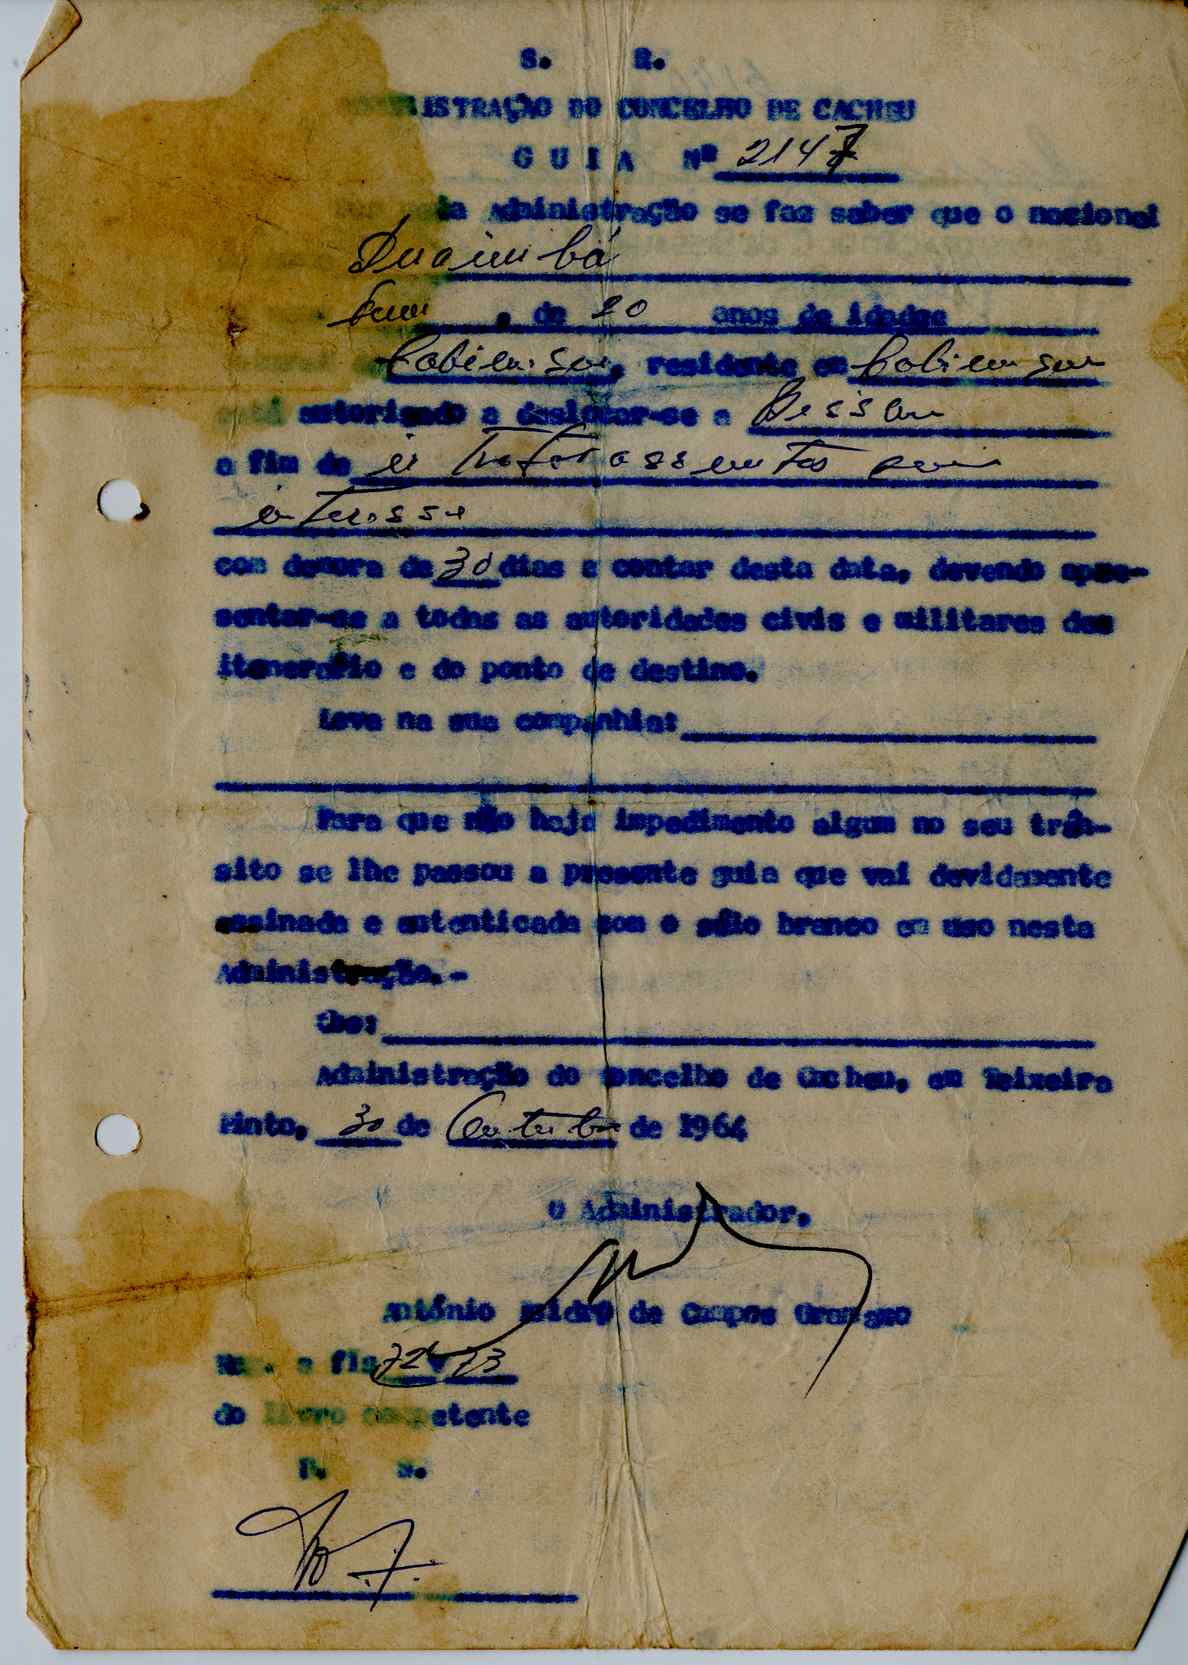 S. R.
ADMINISTRAÇÃO DO CONCELHO DE CACHEU
G U I A Nº 2147
Por esta Administração se faz saber que o nacional
, de 20 anos de idade
, residente em
está autorizado a deslocar-se a Bissau
a fim de ir tratar assuntos seu
interesse
com demora de 30 dias a contar desta data, devendo apre-
sentar-se a todas as autoridades civis e militares dos
itenerário e do ponto de destino.
Leva na sua companhia:
Para que não haja impedimento algum no seu trân-
sito se lhe passou a presente guia que vai devidamente
assinada e autenticada com o sêlo branco em uso nesta
Administração.-
Obs:
Administração do Concelho de Cacheu, em Teixeira
Pinto, 30 de Outubro de 1964
O Administrador,
António Isidro de Campos
Reg. a fls 72 v 73
do livro competente